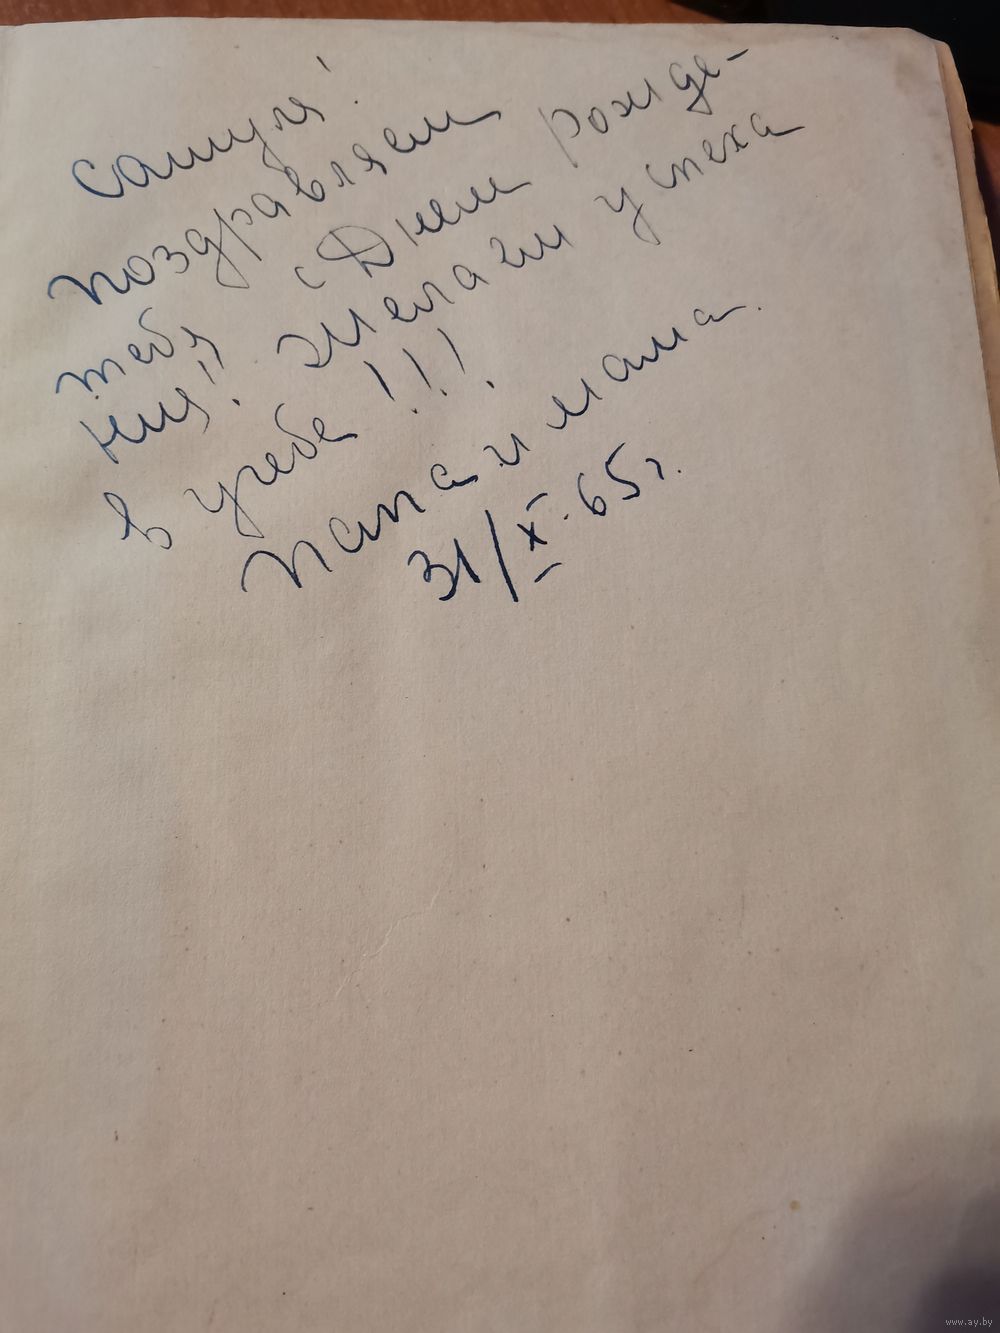 Сашуля!
поздравляем
тебя с Днем рожде-
ния! Желаем успеха
в учебе!!!
папа и мама.
31/X.65г.
www.ay.by